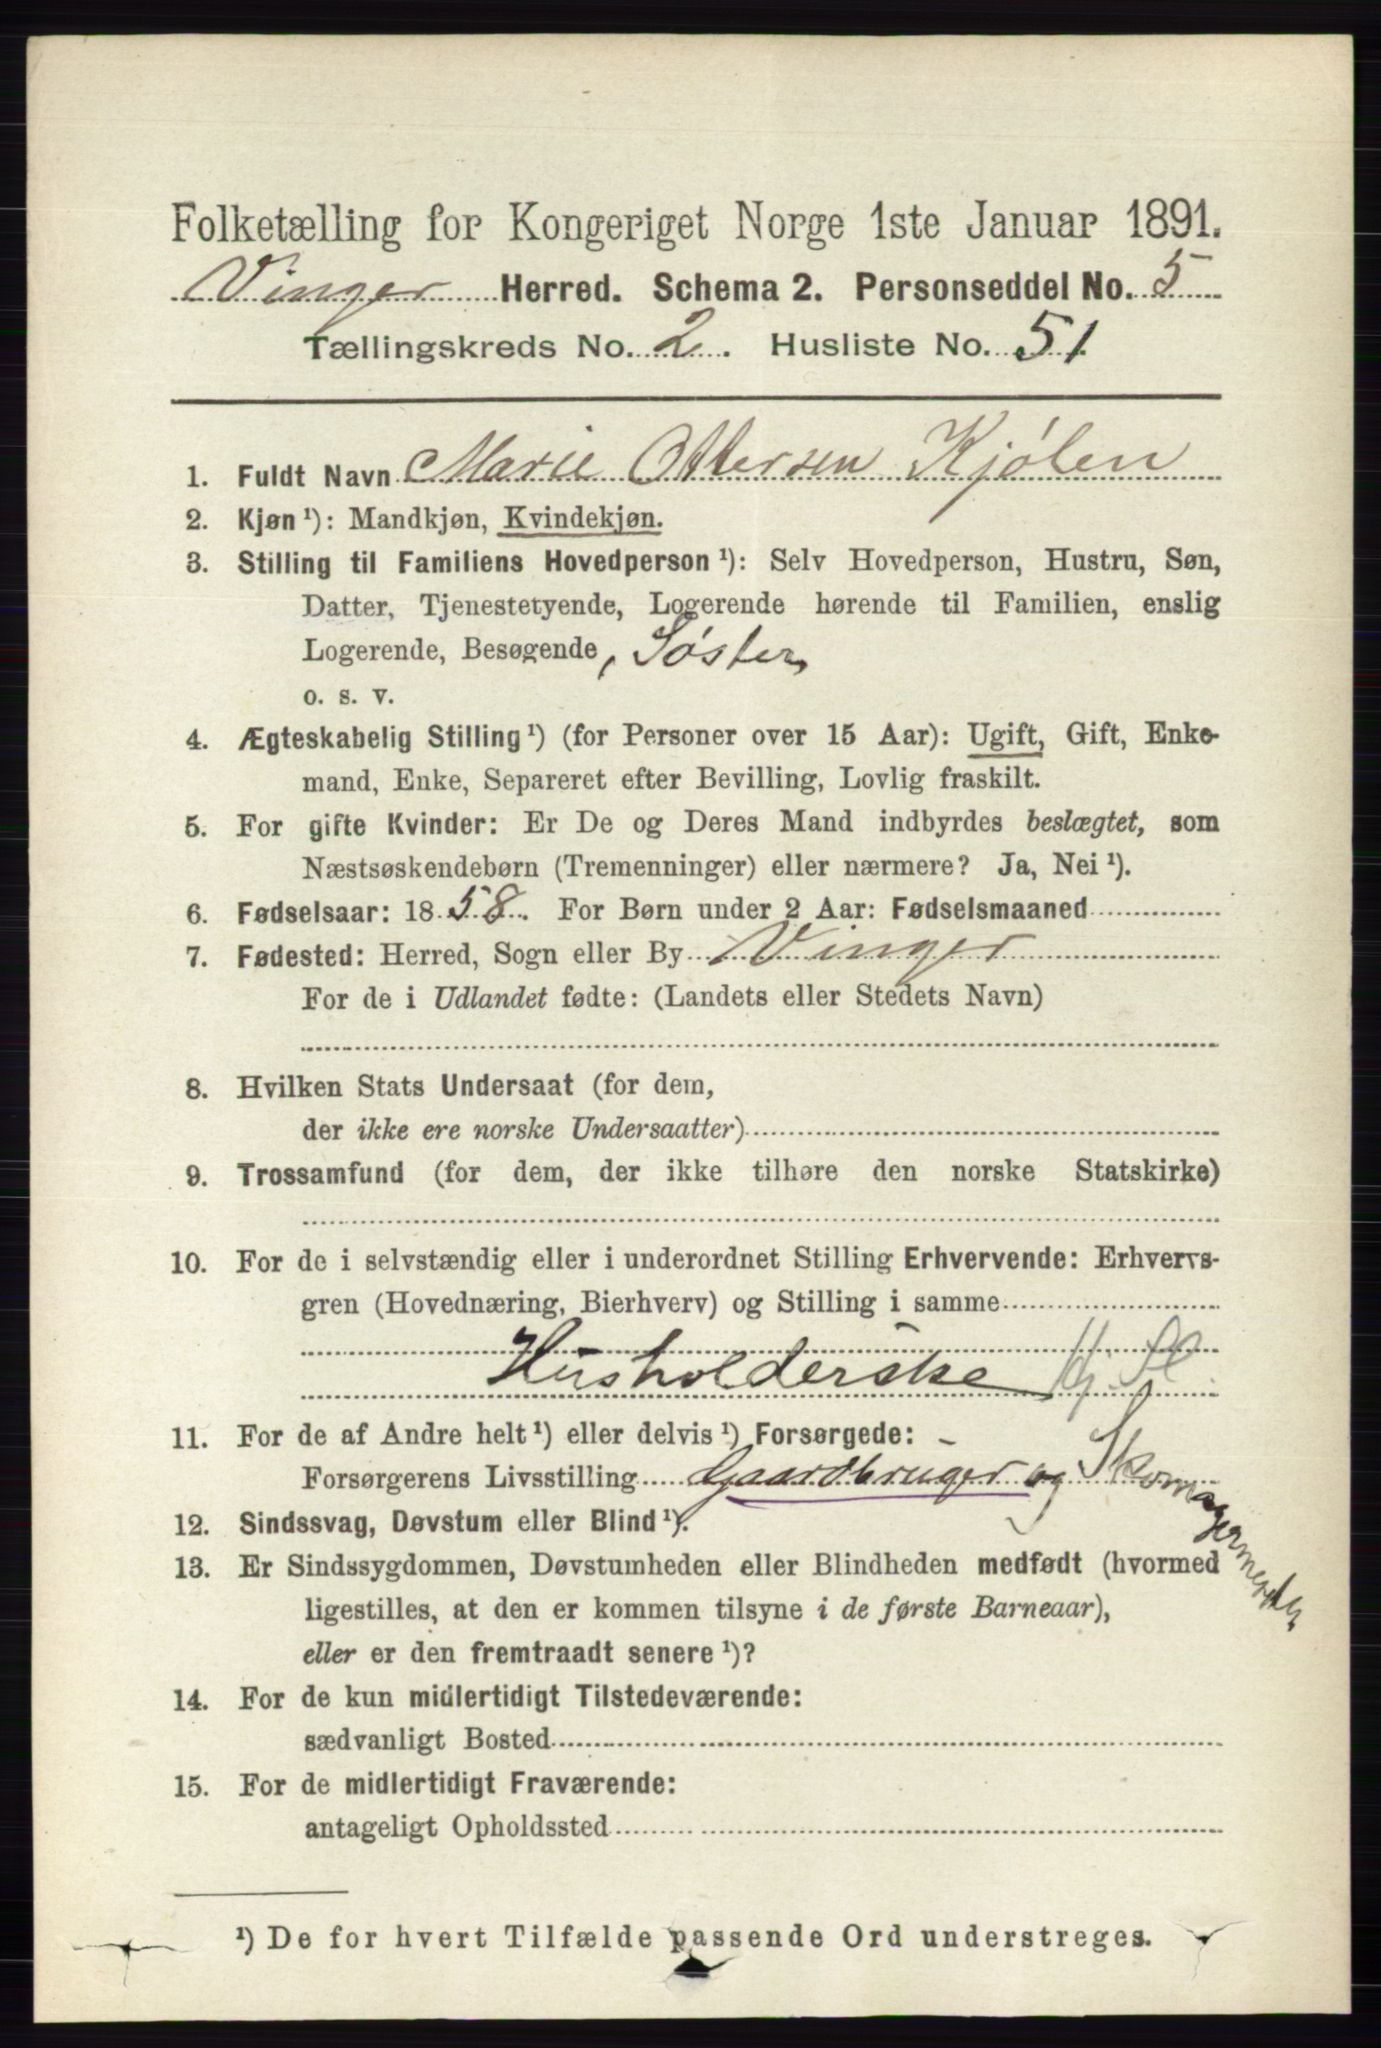 Folketælling for Kongeriget Norge 1ste Januar 1891.
Vinger Herred. Schema 2. Personseddel No. 5
Tællingskreds No. 2. Husliste No. 51
1. Fuldt Navn Marie Ottersen Kjølen
2. Kjøn ¹): Mandkjøn, Kvindekjøn.
3. Stilling til Familiens Hovedperson ¹): Selv Hovedperson, Hustru, Søn,
Datter, Tjenestetyende, Logerende hørende til Familien, enslig
Logerende, Besøgende, Søster,
o. s. v.
4. Ægteskabelig Stilling ¹) (for Personer over 15 Aar): Ugift, Gift, Enke-
mand, Enke, Separeret efter Bevilling, Lovlig fraskilt.
5. For gifte Kvinder: Er De og Deres Mand indbyrdes beslægtet, som
Næstsøskendebørn (Tremenninger) eller nærmere? Ja, Nei ¹).
6. Fødselsaar: 1858. For Børn under 2 Aar: Fødselsmaaned
7. Fødested: Herred, Sogn eller By Vinger
For de i Udlandet fødte: (Landets eller Stedets Navn)
8. Hvilken Stats Undersaat (for dem,
der ikke ere norske Undersaatter)
9. Trossamfund (for dem, der ikke tilhøre den norske Statskirke)
10. For de i selvstændig eller i underordnet Stilling Erhvervende: Erhvervs-
gren (Hovednæring, Bierhverv) og Stilling i samme
Husholderske
11. For de af Andre helt ¹) eller delvis ¹) Forsørgede: -
Forsørgerens Livsstilling Gaardbruger og Skomagermester
12. Sindssvag, Døvstum eller Blind ¹).
13. Er Sindssygdommen, Døvstumheden eller Blindheden medfødt (hvormed
ligestilles, at den er kommen tilsyne i de første Barneaar),
eller er den fremtraadt senere ¹)?
14. For de kun midlertidigt Tilstedeværende:
sædvanligt Bosted
15. For de midlertidigt Fraværende:
antageligt Opholdssted
¹) De for hvert Tilfælde passende Ord understreges.